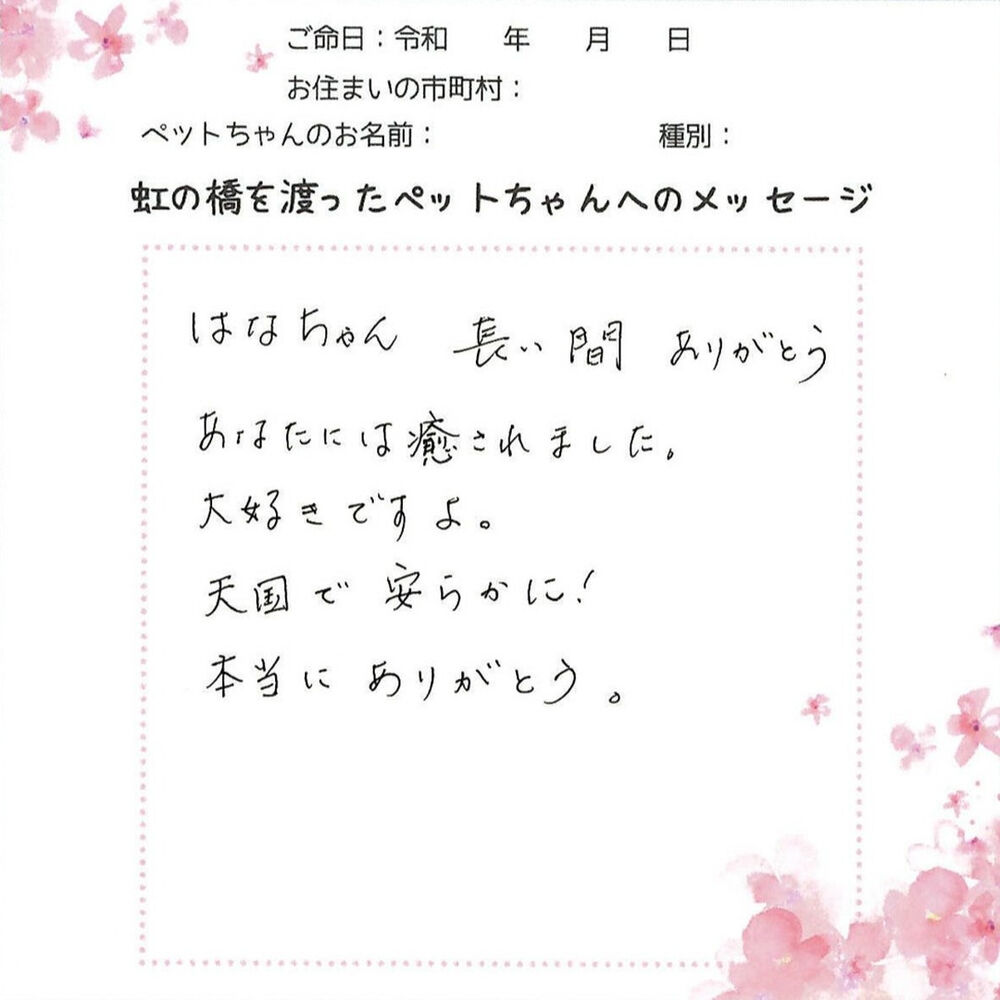 ご命日：令和　　年　　月　　日
お住まいの市町村：
ペットちゃんのお名前：　　　　　　　　種別：
虹の橋を渡ったペットちゃんへのメッセージ
はなちゃん　長い間　ありがとう
あなたには癒されました。
大好きですよ。
天国で安らかに！
本当にありがとう。